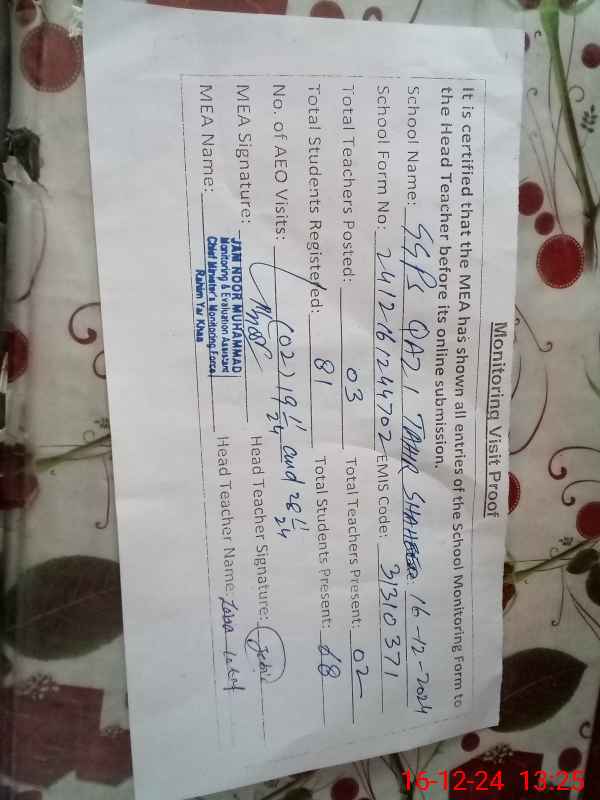 Monitoring Visit Proof
It is certified that the MEA has shown all entries of the School Monitoring Form to
the Head Teacher before its online submission.
School Name: QAZI TAHIR 16-12-2024
School Form No: 2412161244702 EMIS Code: 31310371
Total Teachers Posted: 03 Total Teachers Present: 02
Total Students Registered: 81 Total Students Present: 68
No. of AEO Visits: (02) 19 11/24 and 28 11/24
MEA Signature: Head Teacher Signature:
MEA Name: Head Teacher Name:
JAM NOOR MUHAMMAD
Monitoring & Evaluation Assistant
Chief Minister's Monitoring Force
Rahim Yar Khan
16-12-24 13:25